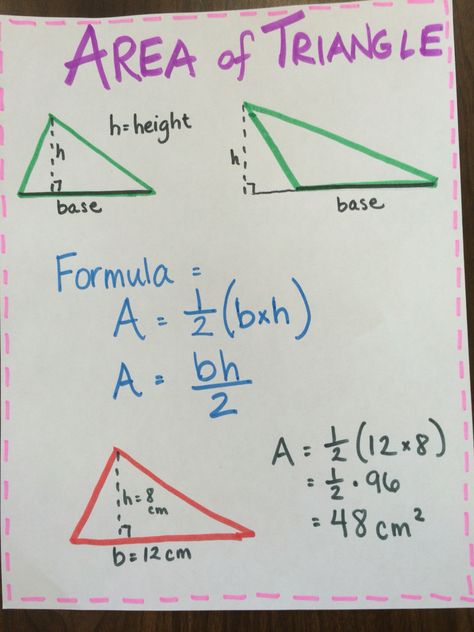 AREA of TRIANGLE
h = height
h
base
h
base
Formula =
A = 1/2 (b×h)
A = bh/2
h = 8 cm
b = 12 cm
A = 1/2 (12 × 8)
= 1/2 · 96
= 48 cm²